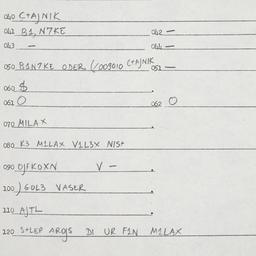 040 C+AJNIK
041 B1, N7KE 042 —
043 — 044 —
050 B1N7KE ODER (/009010 C+AJNIK 051 —
060 $
061 O 062 O
070 MILAX
080 K3 M1LAX V1L3X NIS+
090 OJFKOXN V —
100 )GOL3 VASER
110 AJTL
120 S+LEP ARQJS DI UR F1N M1LAX